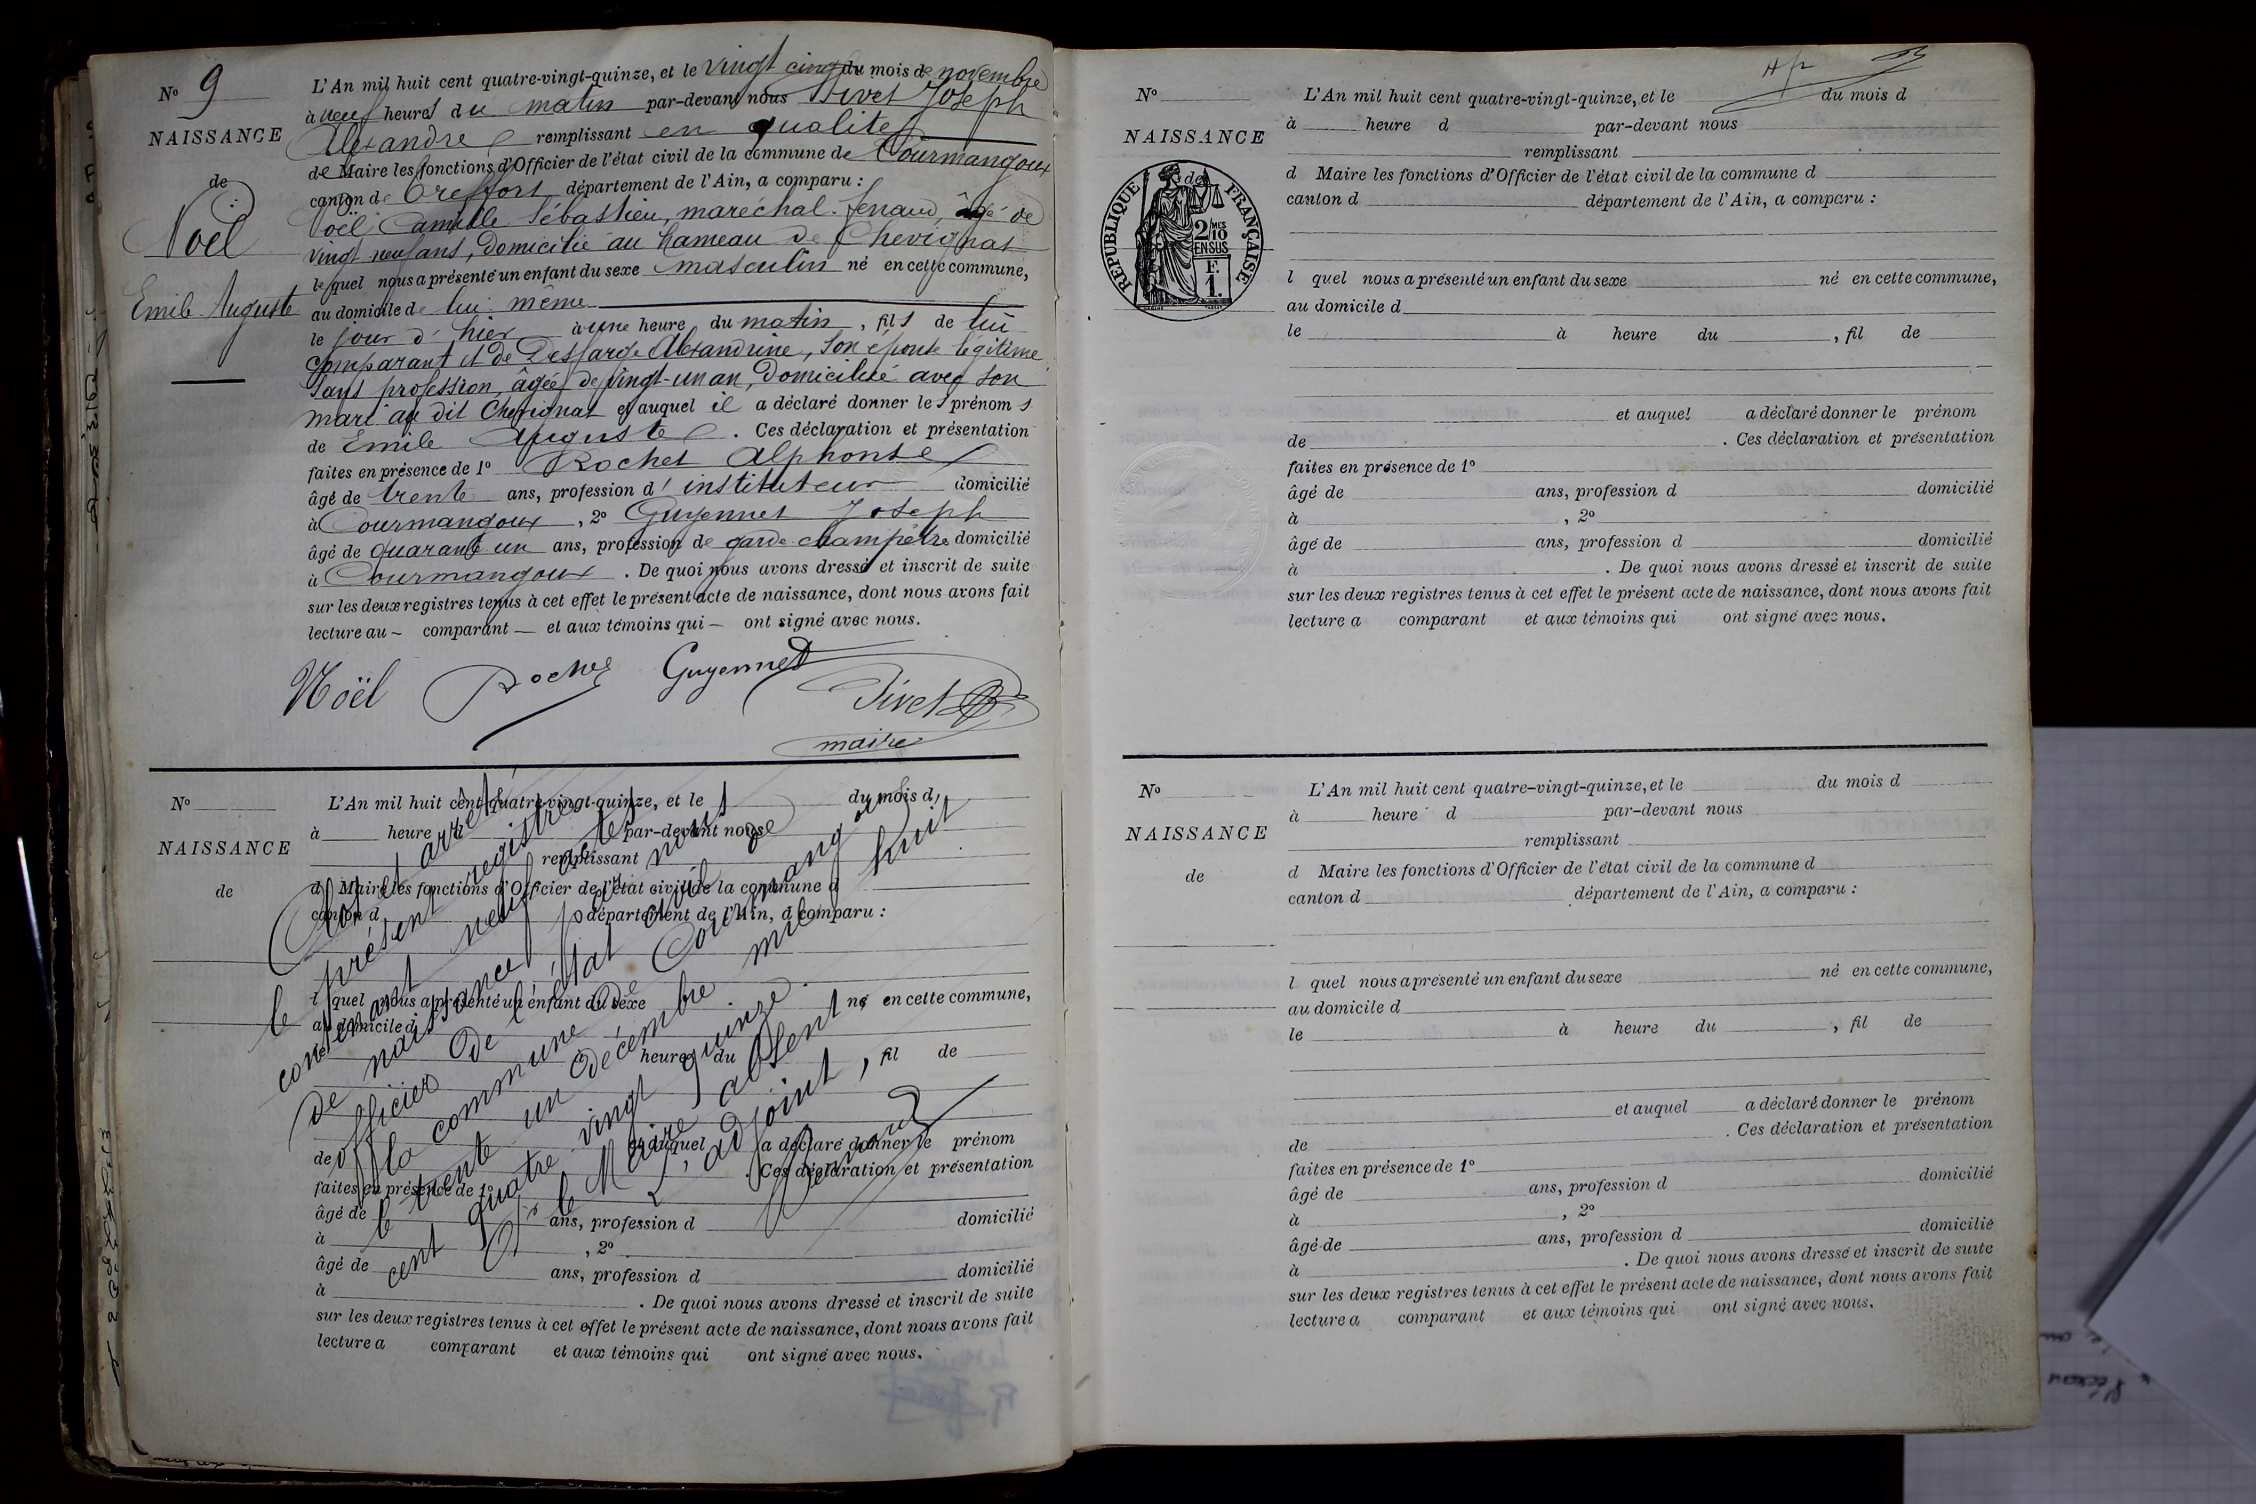 N° 9
NAISSANCE
de
Noël
Emile Auguste
L'An mil huit cent quatre-vingt-quinze, et le vingt cinq du mois de novembre
à neuf heures du matin par-devant nous Pivet Joseph
Alexandre remplissant en qualité
de Maire les fonctions d'Officier de l'état civil de la commune de Courmangoux
canton de Treffort, département de l'Ain, a comparu :
Noël Camille Sébastien, maréchal-ferrand, âgé de
vingt neuf ans, domicilié au hameau de Chevignat
lequel nous a présenté un enfant du sexe masculin né en cette commune,
au domicile de lui même
le jour d'hier à une heure du matin, fils de lui
comparant et de Desfarge Alexandrine, son épouse légitime
sans profession, âgée de vingt-un an, domiciliée avec son
mari au dit Chevignat et auquel il a déclaré donner les prénoms
de Emile Auguste. Ces déclaration et présentation
faites en présence de 1° Rochet Alphonse
âgé de trente ans, profession d'instituteur domicilié
à Courmangoux, 2° Guyennet Joseph
âgé de quarante un ans, profession de garde-champêtre domicilié
à Courmangoux. De quoi nous avons dressé et inscrit de suite
sur les deux registres tenus à cet effet le présent acte de naissance, dont nous avons fait
lecture au - comparant - et aux témoins qui - ont signé avec nous.
Noël Rochet Guyennet Pivet
maire
N°
NAISSANCE
de
L'An mil huit cent quatre-vingt-quinze, et le du mois d
à heure d par-devant nous
remplissant
d Maire les fonctions d'Officier de l'état civil de la commune d
canton d département de l'Ain, a comparu :
l quel nous a présenté un enfant du sexe né en cette commune,
au domicile d
heure du , fil de
et auquel a déclaré donner le prénom
de . Ces déclaration et présentation
faites en présence de 1°
âgé de ans, profession d domicilié
à , 2°
âgé de ans, profession d domicilié
à . De quoi nous avons dressé et inscrit de suite
sur les deux registres tenus à cet effet le présent acte de naissance, dont nous avons fait
lecture a comparant et aux témoins qui ont signé avec nous.
Clos et arrêté
le présent registre
contenant neuf actes
de naissance par nous
officier de l'état civil de
la commune de Courmangoux
le trente un décembre mil huit
cent quatre vingt quinze.
Pr le Maire absent
L'adjoint,
N°
NAISSANCE
REPUBLIQUE FRANÇAISE
2/10 MES
EN SUS
F.
1.
L'An mil huit cent quatre-vingt-quinze, et le du mois d
à heure d par-devant nous
remplissant
d Maire les fonctions d'Officier de l'état civil de la commune d
canton d département de l'Ain, a comparu :
l quel nous a présenté un enfant du sexe né en cette commune,
au domicile d
le à heure du , fil de
et auquel a déclaré donner le prénom
de . Ces déclaration et présentation
faites en présence de 1°
âgé de ans, profession d domicilié
à , 2°
âgé de ans, profession d domicilié
à . De quoi nous avons dressé et inscrit de suite
sur les deux registres tenus à cet effet le présent acte de naissance, dont nous avons fait
lecture a comparant et aux témoins qui ont signé avec nous.
N°
NAISSANCE
de
L'An mil huit cent quatre-vingt-quinze, et le du mois d
à heure d par-devant nous
remplissant
d Maire les fonctions d'Officier de l'état civil de la commune d
canton d département de l'Ain, a comparu :
l quel nous a présenté un enfant du sexe né en cette commune,
au domicile d
le à heure du , fil de
et auquel a déclaré donner le prénom
de . Ces déclaration et présentation
faites en présence de 1°
âgé de ans, profession d domicilié
à , 2°
âgé de ans, profession d domicilié
à . De quoi nous avons dressé et inscrit de suite
sur les deux registres tenus à cet effet le présent acte de naissance, dont nous avons fait
lecture a comparant et aux témoins qui ont signé avec nous.